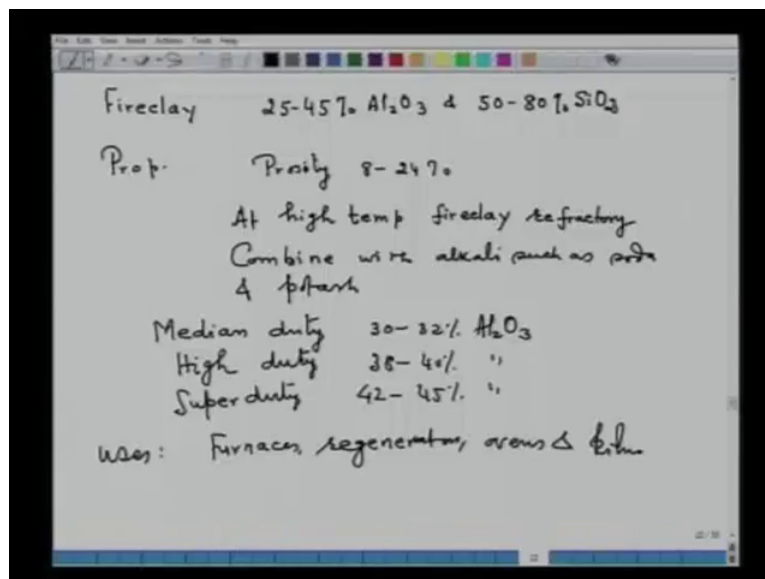 Fireclay 25-45% Al2O3 & 50-80% SiO2
Prop. Prosity 8-24%
At high temp fireclay refractory
Combine with alkali such as soda
& potash
Median duty 30-32% Al2O3
High duty 38-40% "
Superduty 42-45% "
uses: Furnaces, regenerators, ovens & kilns